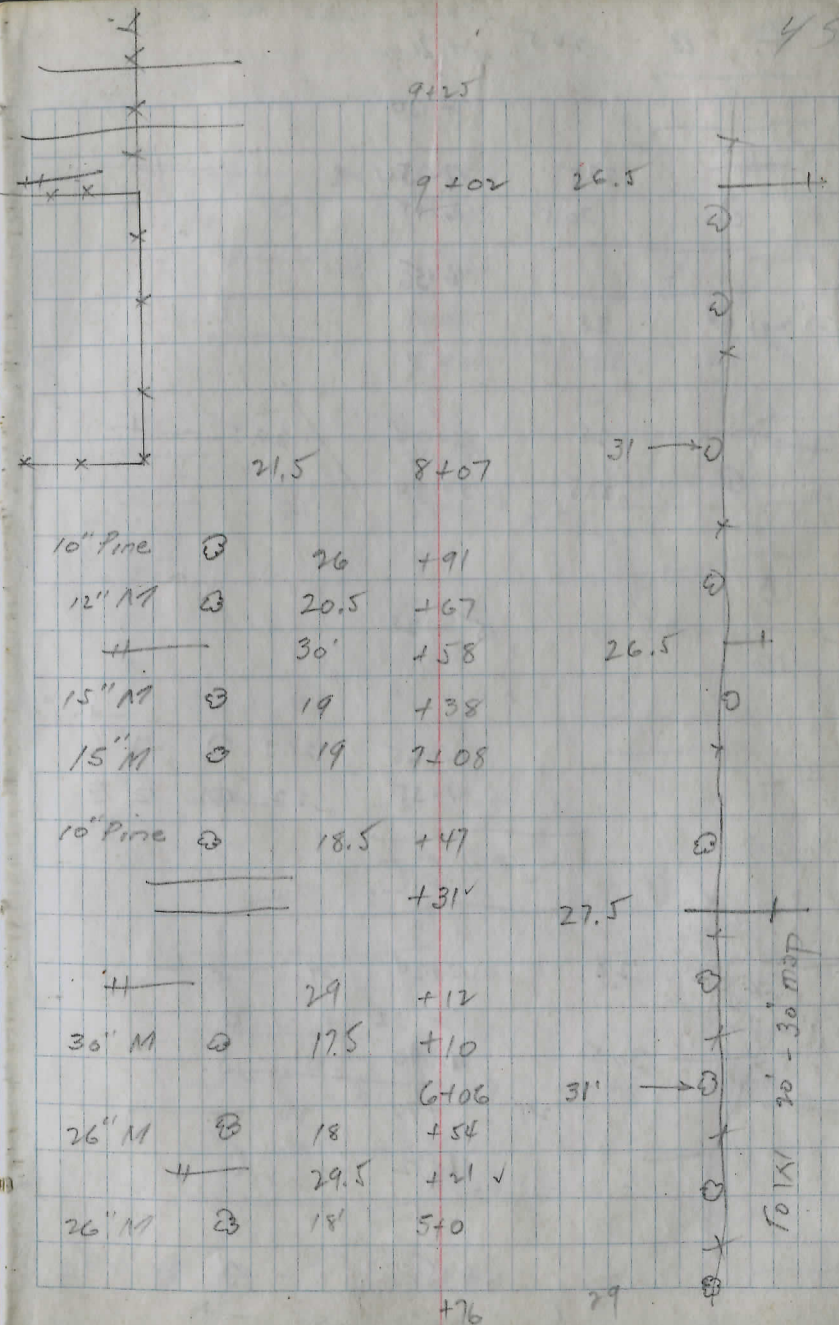 45
9+25
9+02 26.5
31
21.5 8+07
10" Pine 26 +91
12" M 20.5 +67
30' +58 26.5
15" M 19 +38
15" M 19 7+08
10" Pine 18.5 +47
+31 ✓ 27.5
29 +12
30" M 17.5 +10
6+06 31'
26" M 18 +54
29.5 +21 ✓
26" M 18' 5+0
+76 29
20" - 30" map